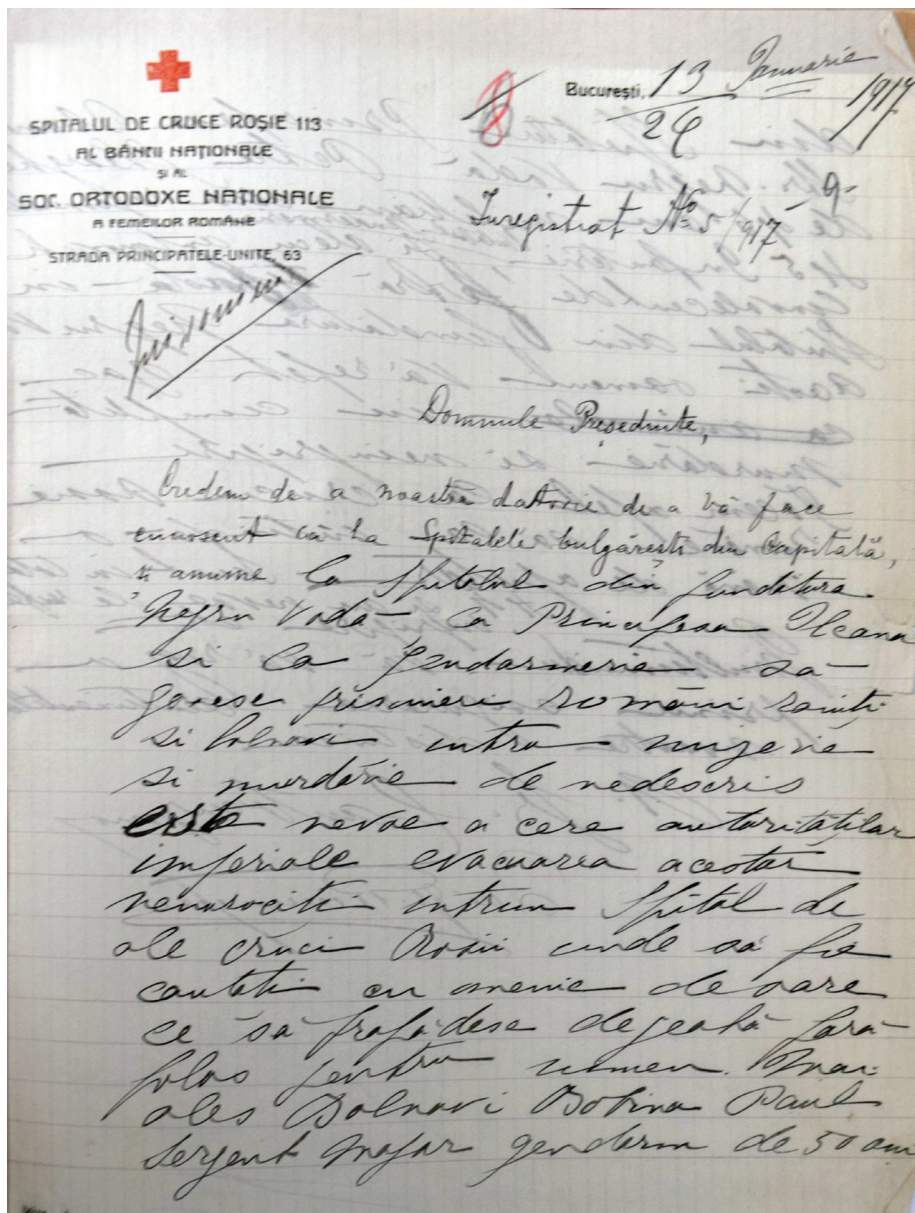 SPITALUL DE CRUCE ROȘIE 113
AL BĂNCII NAȚIONALE
ȘI AL
SOC. ORTODOXE NAȚIONALE
A FEMEILOR ROMÂNE
STRADA PRINCIPATELE-UNITE, 63
București, 13 Januarie 1917
26
8
Inregistrat No 5/917
Domnule Președinte,
Credem de a noastră datorie de a vă face
cunoscut că la Spitalele bulgărești din Capitală,
și anume la Spitalul din fundătura
Negru Vodă la Principesa Ileana
si la Jendarmerie să
gasesc prisonieri români raniți
si bolnavi intro mizerie
si murdărie de nedescris
este nevoe a cere autorităților
imperiale evacuarea acestor
nenorociti intrun Spital de
ale cruci Rosii unde să fie
cautati cu omenie de oare
ce să prăpădesc degeabă fară
folos pentru nimeni. Mai
ales Bolnavi Bobina Paul
Sergent Major gendarm de 50 ani